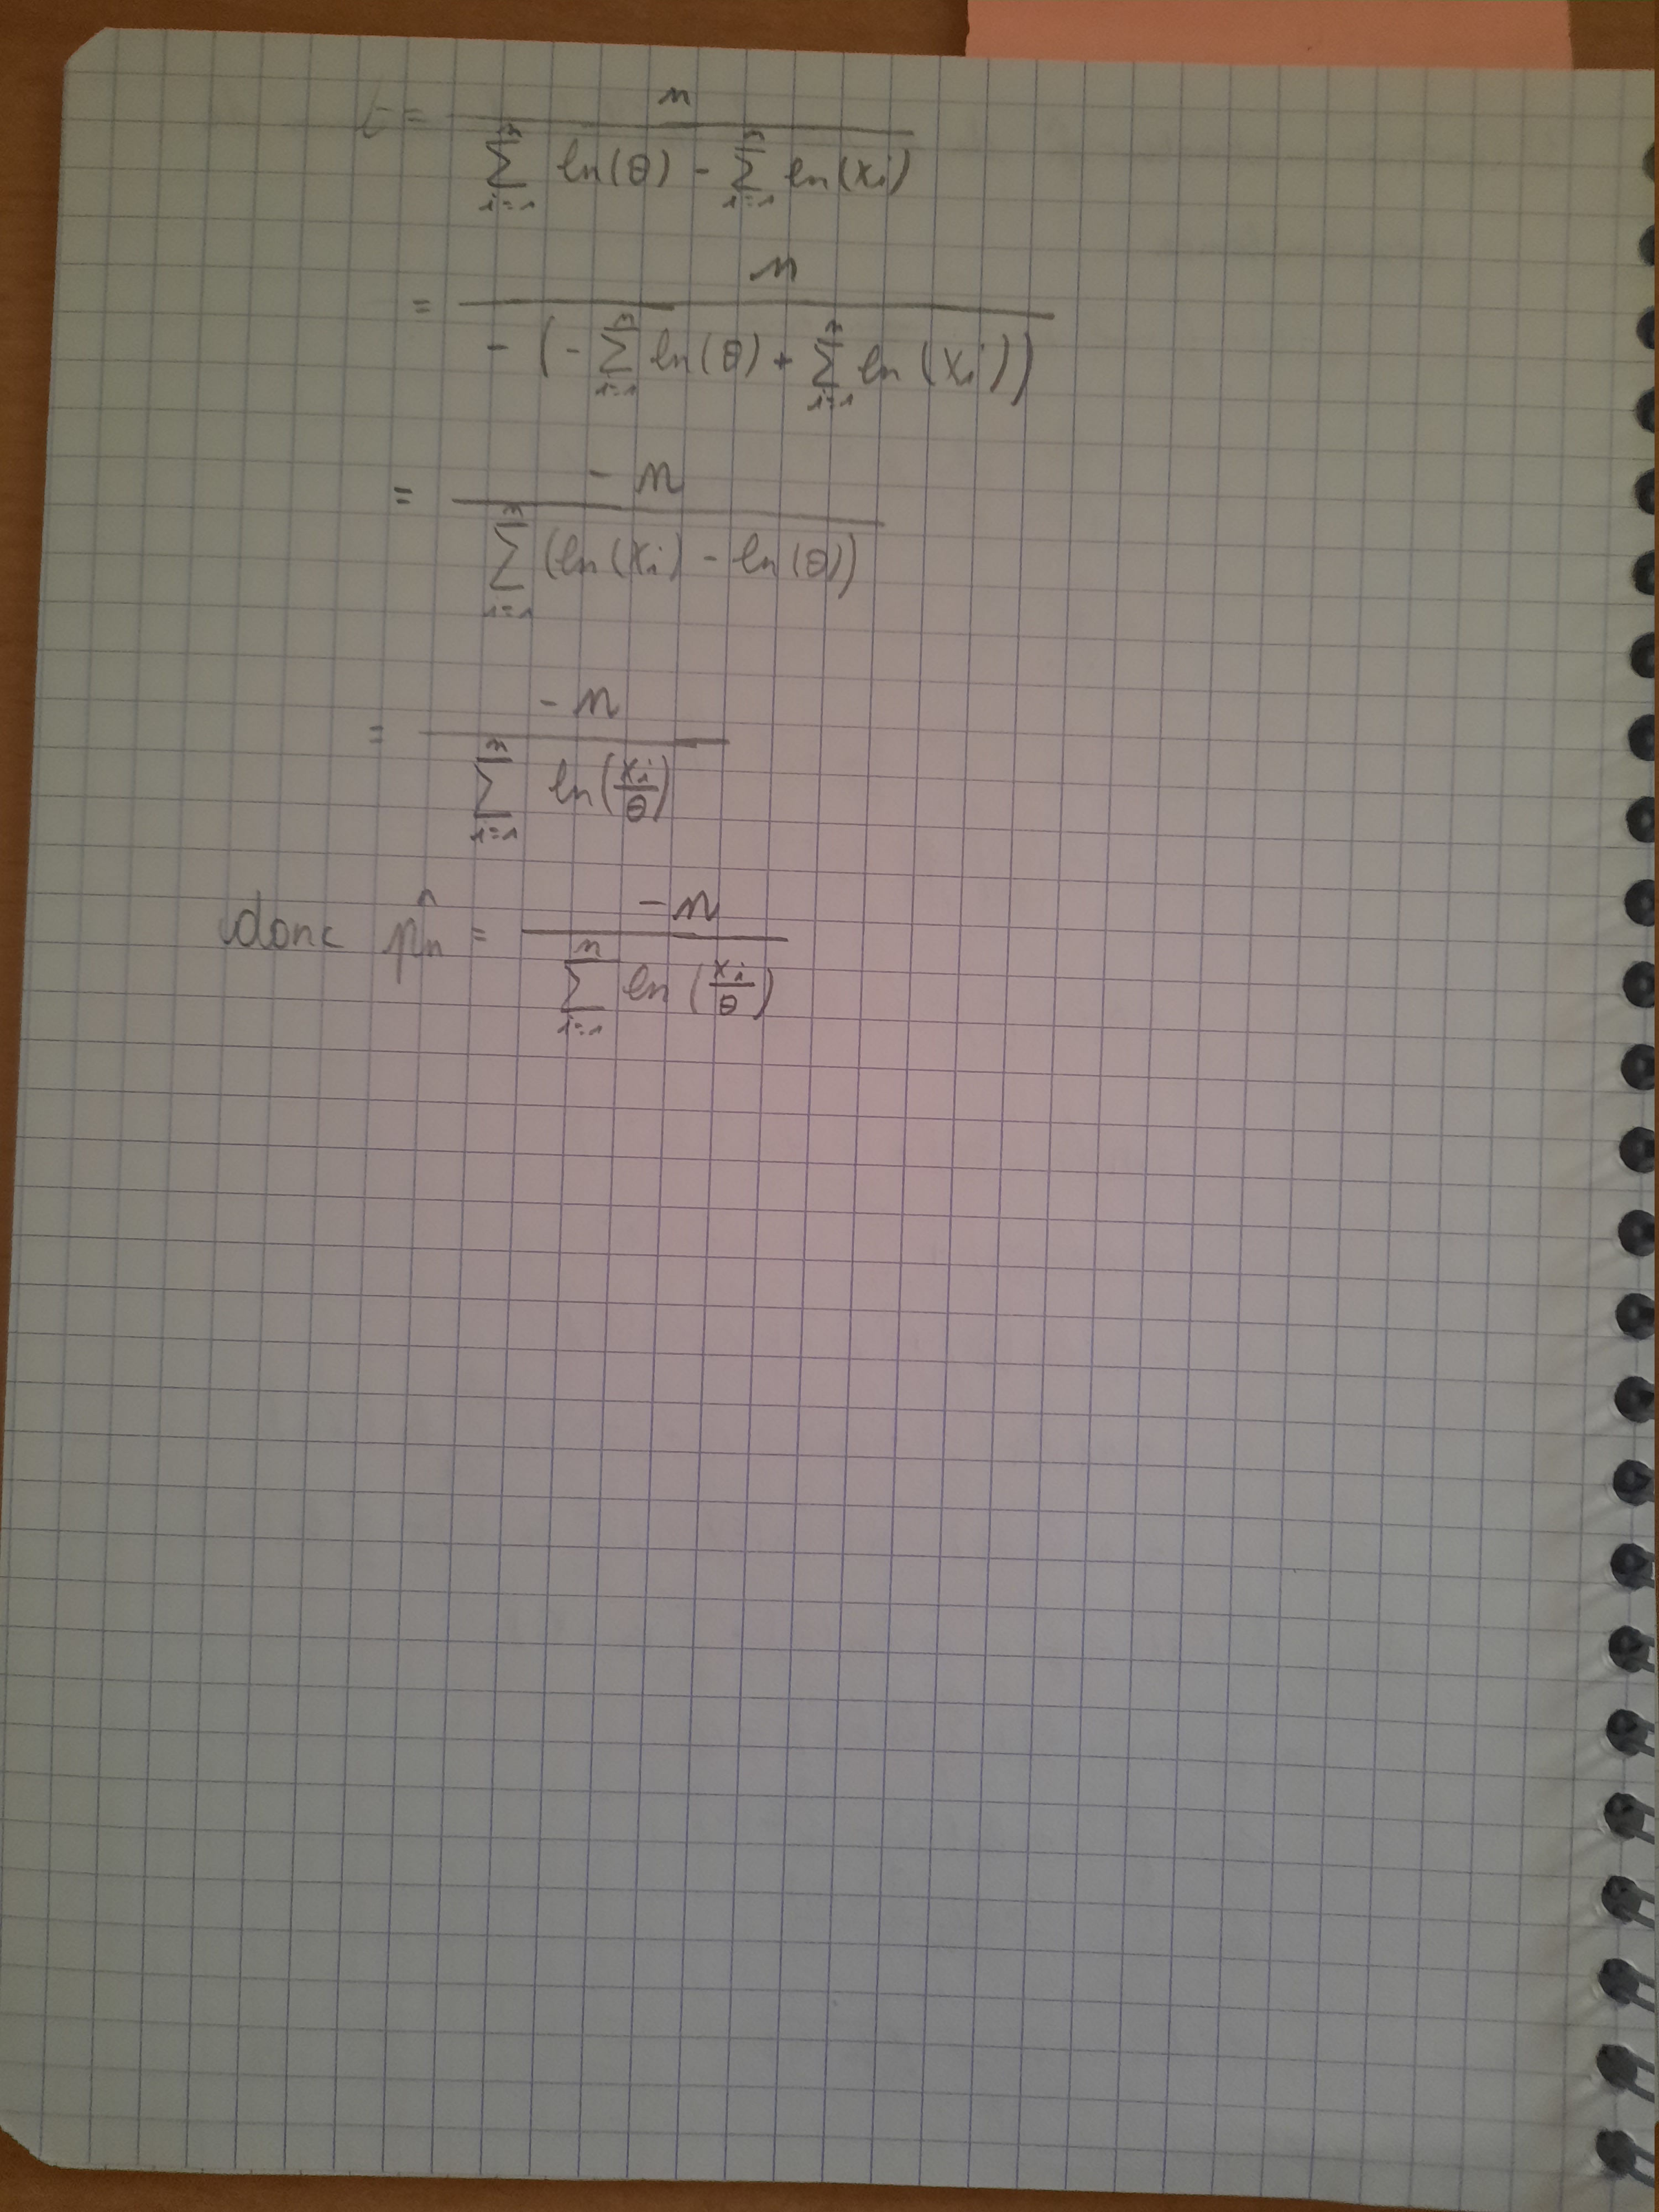 = n / (∑_{i=1}^{n} ln(θ) - ∑_{i=1}^{n} ln(xi))
= n / (- (-∑_{i=1}^{n} ln(θ) + ∑_{i=1}^{n} ln(xi)))
= -n / (∑_{i=1}^{n} (ln(xi) - ln(θ)))
= -n / (∑_{i=1}^{n} ln(xi/θ))
donc p̂n = -n / (∑_{i=1}^{n} ln(xi/θ))